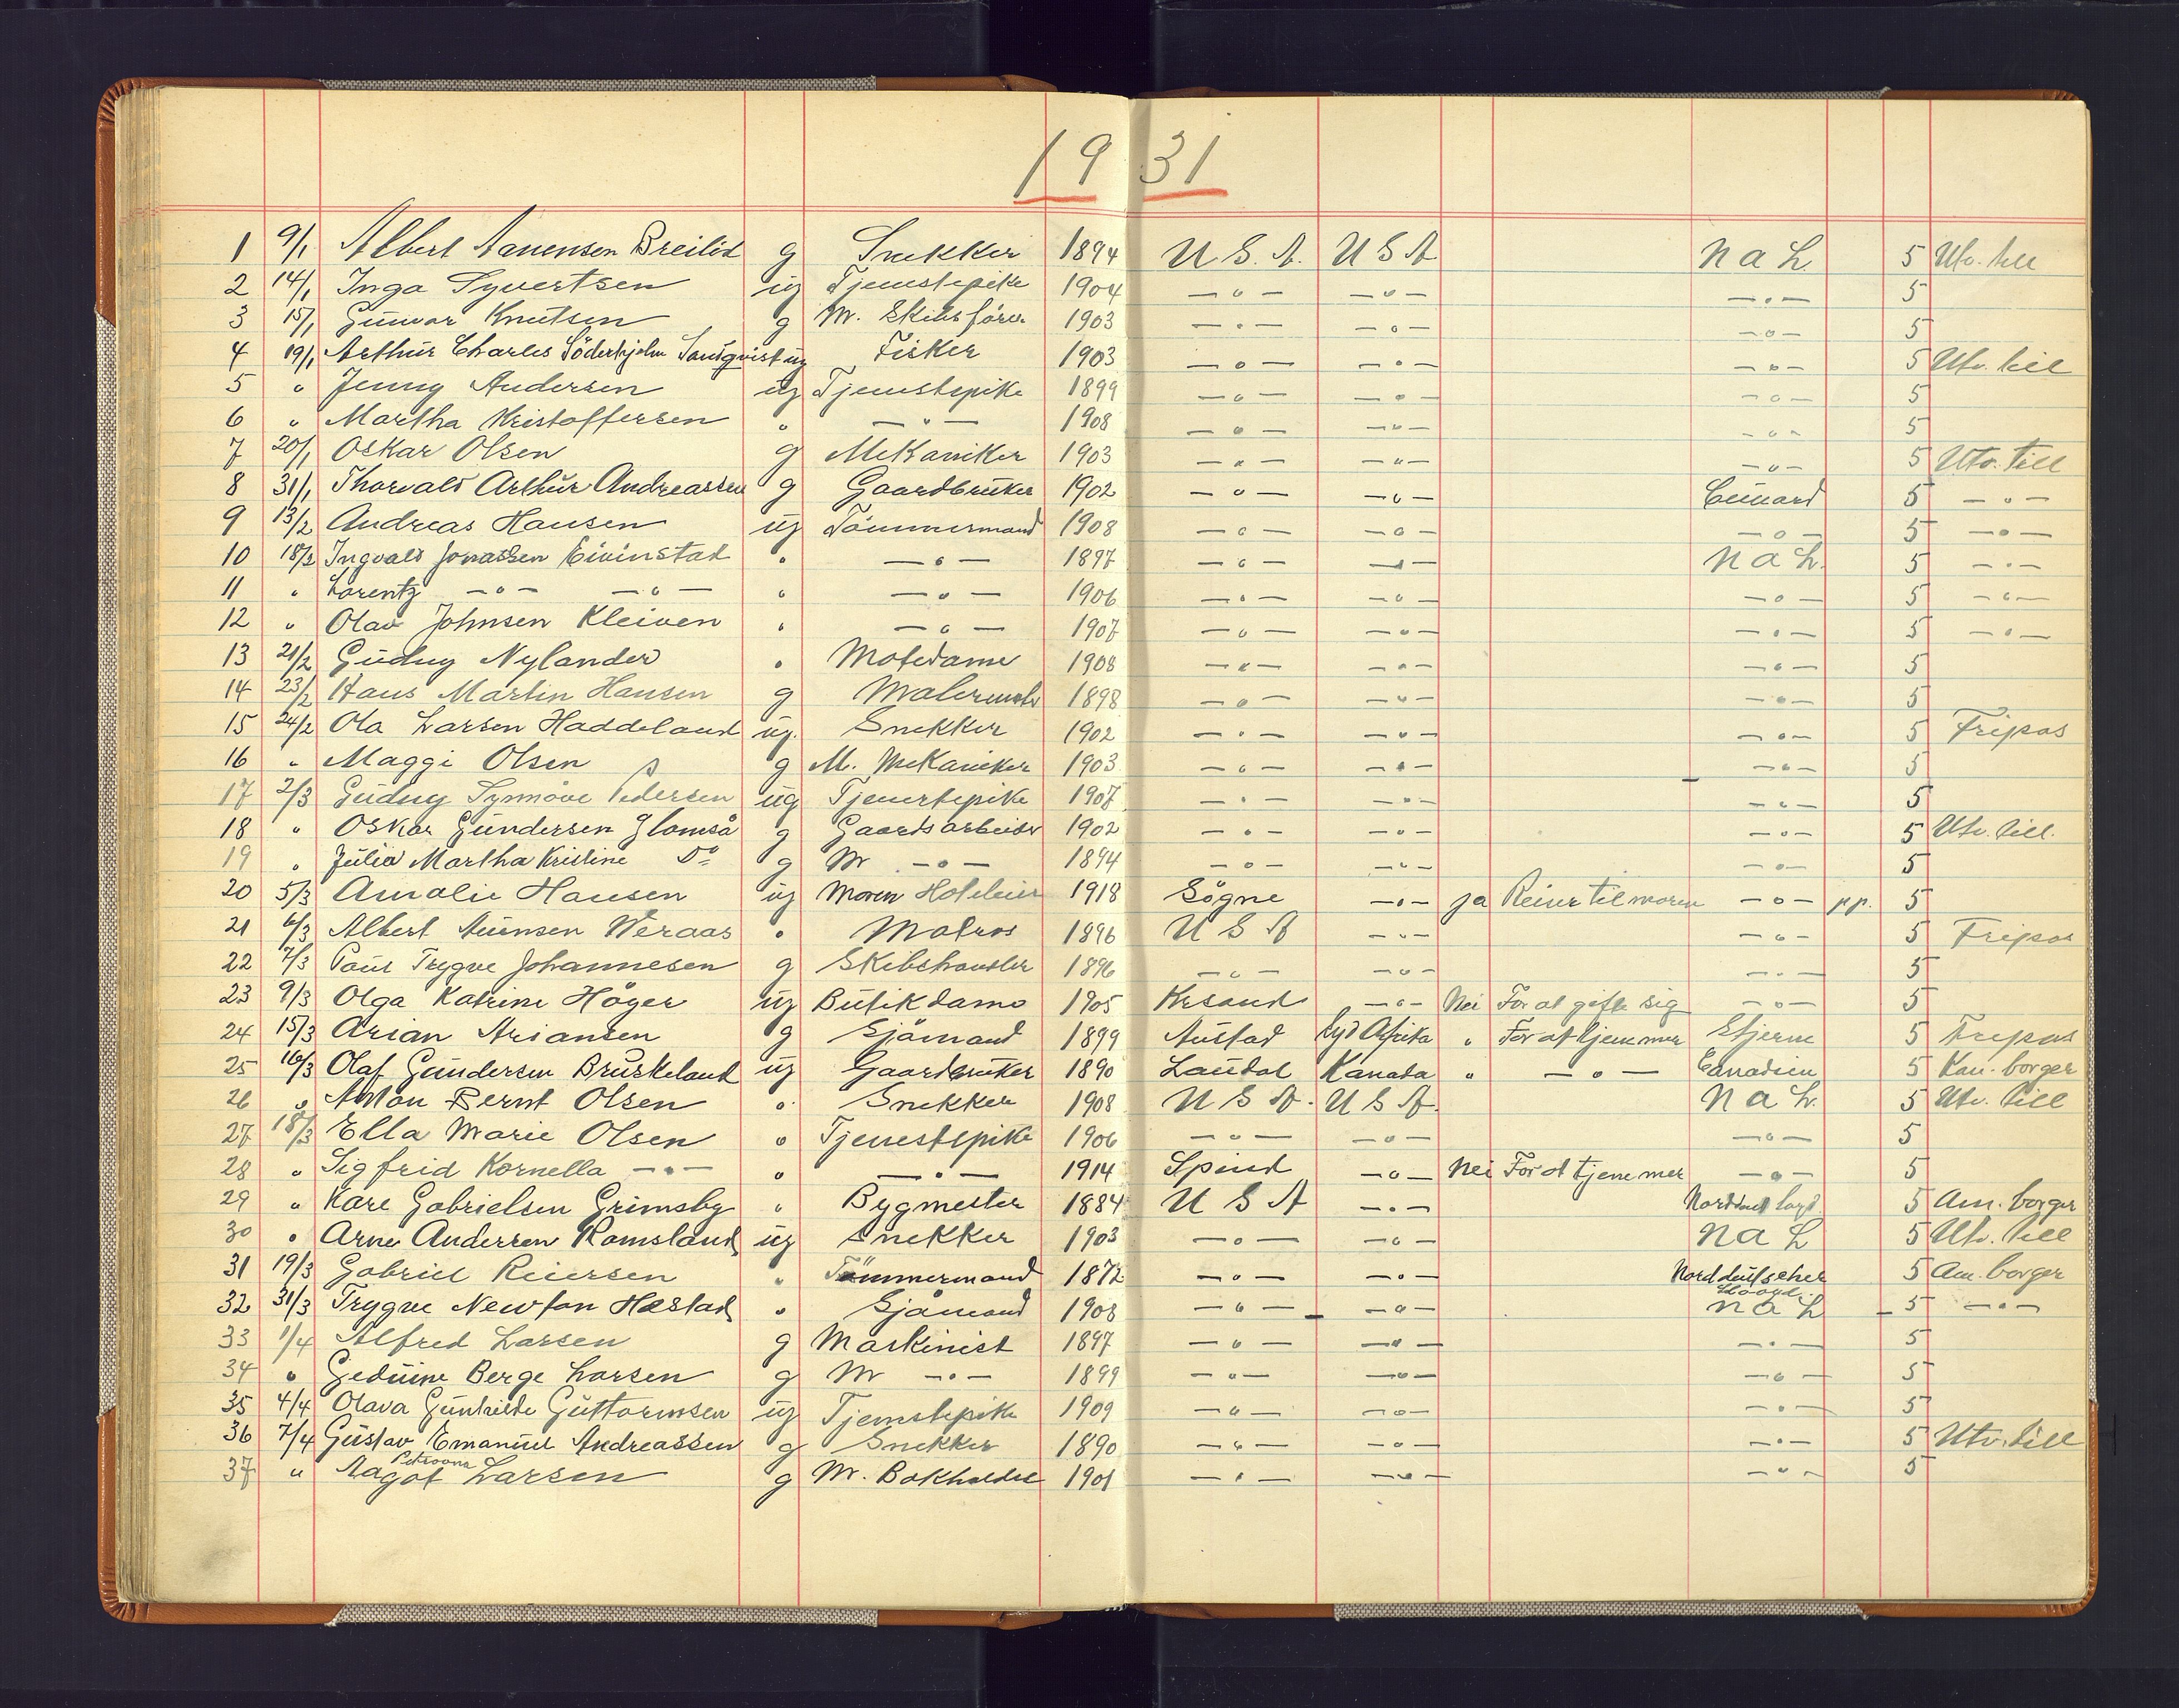 1931
1 9/1 Albert Aanensen Breilid g Snekker 1894 U S. A. U S A N a L 5 Utv. till
2 14/1 Inga Syvertsen ug Tjenstepike 1904 — " — — " — — " — 5
3 15/1 Gunvor Knutsen g M. Skibsförer 1903 — " — — " — — " — 5
4 19/1 Arthur Charles Söderhjelm Sandqvist ug Fisker 1903 — " — — " — — " — 5 Utv. till
5 " Jenny Andersen ug Tjenstepike 1899 — " — — " — — " — 5
6 " Martha Kristoffersen " — " — 1908 — " — — " — — " — 5
7 20/1 Oskar Olsen g Mekaniker 1903 — " — — " — — " — 5 Utv. till
8 31/1 Thorvald Arthur Andreassen g Gaardbruker 1902 — " — — " — Cunard 5 — " —
9 13/2 Andreas Hansen ug Tömmermand 1908 — " — — " — — " — 5 — " —
10 18/2 Ingvald Jonassen Eivinstad " — " — 1897 — " — — " — N a L. 5 — " —
11 " Lorentz — " — — " — " — " — 1906 — " — — " — — " — 5 — " —
12 " Olav Johnsen Kleiven " — " — 1907 — " — — " — — " — 5 — " —
13 21/2 Gudny Nylander " Motedame 1908 — " — — " — — " — 5
14 23/2 Hans Martin Hansen g Malermester 1898 — " — — " — — " — 5
15 24/2 Ola Larsen Haddeland ug. Snekker 1902 — " — — " — — " — 5 Fripas
16 " Maggi Olsen g M. Mekaniker 1903 — " — — " — — " — 5
17 2/3 Gudny Synnöve Pedersen ug Tjenestepike 1907 — " — — " — — " — 5
18 " Oskar Gundersen Glomså g Gaardsarbeider 1902 — " — — " — — " — 5 Utv. till.
19 " Julia Martha Kristine Do g M — " — 1894 — " — — " — — " — 5
20 5/3 Amalie Hansen ug Moren 1918 Sögne — " — ja Reiser til moren — " — pp. 5
21 6/3 Albert Aunsen Weraas " Matros 1896 U S A — " — — " — 5 Fripas
22 7/3 Paul Trygve Johannesen g Skibshandler 1896 — " — — " — — " — 5
23 9/3 Olga Katrine Höyer ug Butikdame 1905 Krsand — " — Nei For at gifte sig — " — 5
24 15/3 Arian Ariansen g Sjömand 1899 Austad Syd Afrika " For at tjene mer Stjerne 5 Fripas
25 16/3 Olaf Gundersen Bruskeland ug Gaardbruker 1890 Laudal Kanada " — " — Canadien 5 Kan. borger
26 " Anton Bernt Olsen " Snekker 1908 U S A. U S A. N a L. 5 Utv. till
27 18/3 Ella Marie Olsen " Tjenestepike 1906 — " — — " — — " — 5
28 " Sigfrid Kornella — " — " — " — 1914 Spind — " — Nei For at tjene mer — " — 5
29 " Kare Gabrielsen Grimsby " Bygmester 1884 U S A — " — 5 Am. borger
30 " Arne Andersen Romsland ug Snekker 1903 — " — — " — N a L 5 Utv. till
31 19/3 Gabriel Reiersen " Tömmermand 1872 — " — — " — Norddeutscher Lloyd 5 Am. borger
32 31/3 Trygve Newton Hæstad " Sjömand 1908 — " — — " — N a L 5 — " —
33 1/4 Alfred Larsen g Maskinist 1897 — " — — " — — " — 5
34 " Geduine Berge Larsen g M — " — 1899 — " — — " — — " — 5
35 4/4 Olava Gunhilde Guttormsen ug Tjenstepike 1909 — " — — " — — " — 5
36 7/4 Gustav Emanuel Andreassen g Snekker 1890 — " — — " — — " — 5 Utv. till
37 " Aagot Petrovna Larsen g M. Bokholder 1901 — " — — " — — " — 5